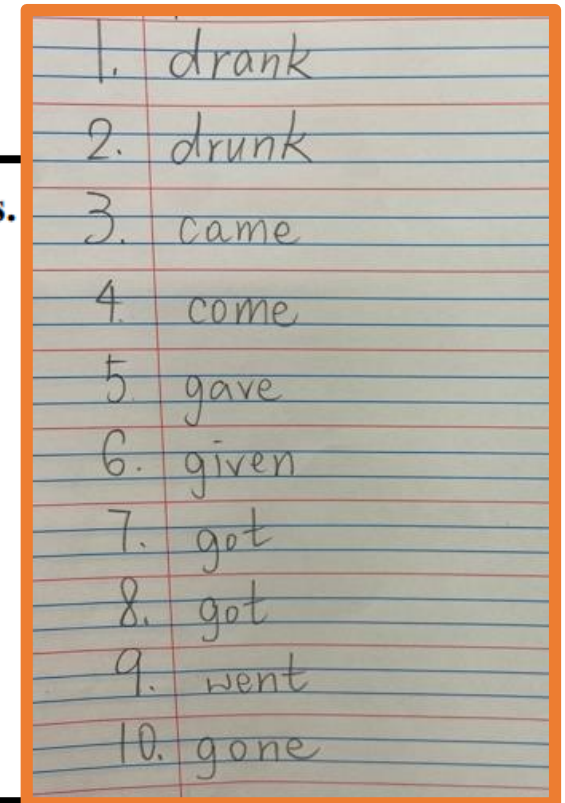 s.
1. drank
2. drunk
3. came
4. come
5. gave
6. given
7. got
8. got
9. went
10. gone